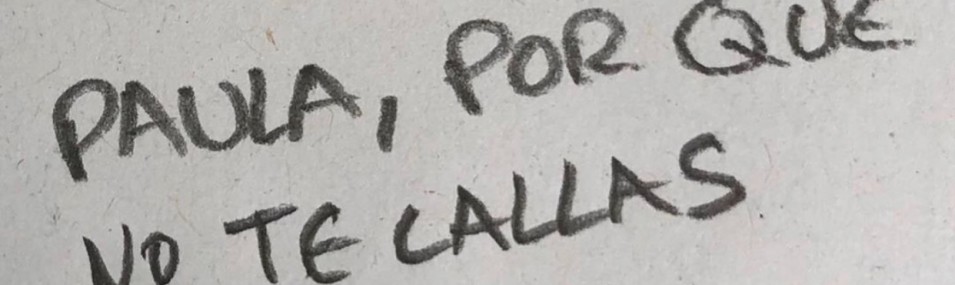 PAULA, POR QUE
NO TE CALLAS